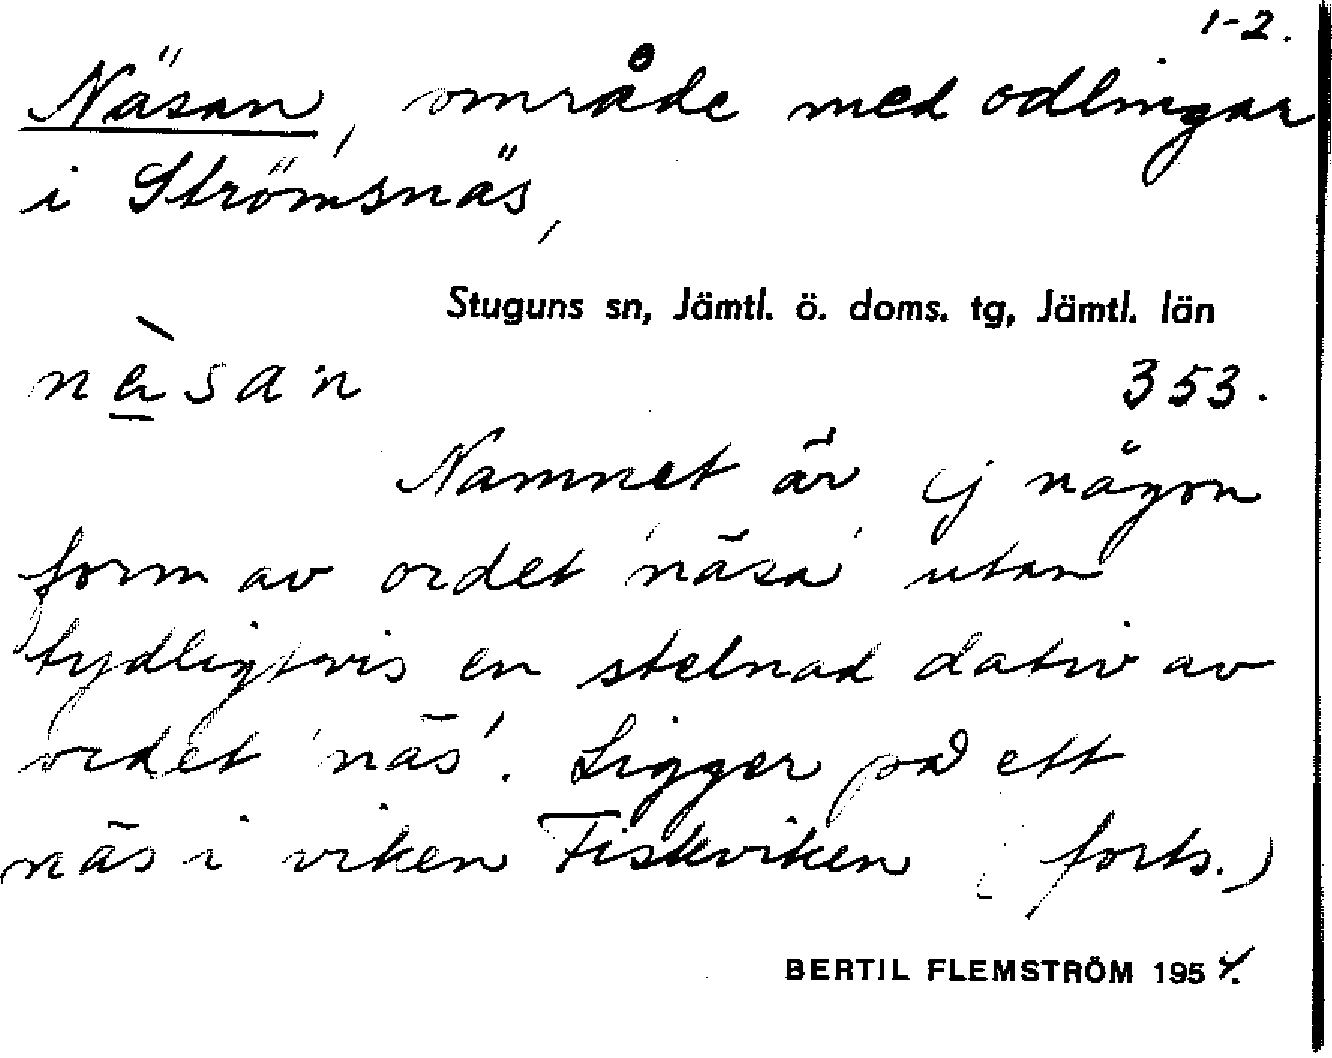 1-2.
Näsan, område med odlingar
i Strömsnäs,
Stuguns sn, Jämtl. ö. doms. tg, Jämtl. län
nä̀sa·n 353.
Namnet är ej någon
form av ordet 'näsa' utan
tydligtvis en stelnad dativ av
ordet 'näs'. Ligger på ett
näs i viken Fiskviken (forts.)
BERTIL FLEMSTRÖM 1954.